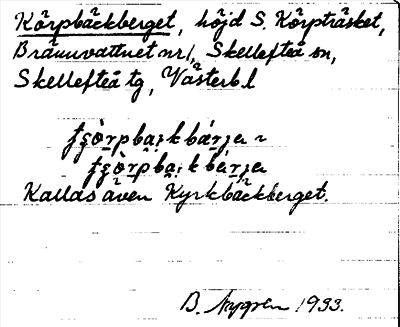 Körpbäckberget, höjd S. Körpträsket,
Bränuvattnet nr 1, Skellefteå sn,
Skellefteå tg, Västerb. l

Kallas även Kyrkbäckberget.
B. Nygren 1933.